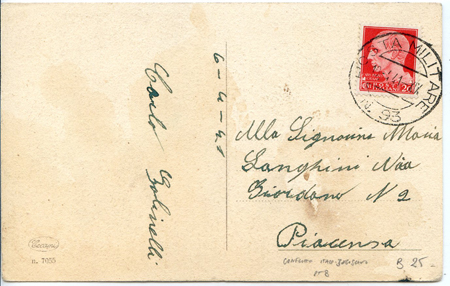 6-4-41
Carlo
POSTA MILITARE
N. 93
Alla Signorina Maria
Langhini Via
Giordano N 2
Piacenza
n. 7055
B. 25-